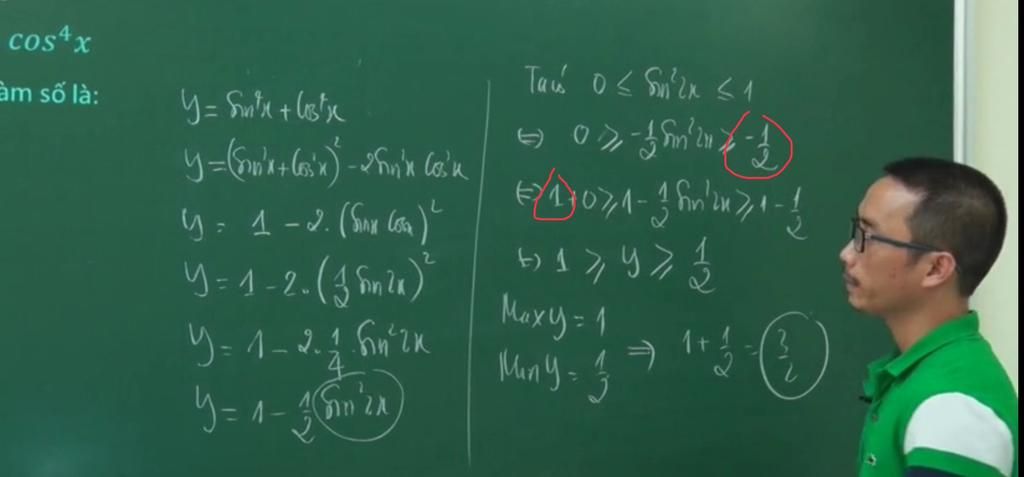 cos⁴x
àm số là:
y = sin⁴x + cos⁴x
y = (sin²x + cos²x)² - 2sin²x cos²x
y = 1 - 2.(sinx cosx)²
y = 1 - 2.(1/2 sin2x)²
y = 1 - 2.1/4.sin²2x
y = 1 - 1/2 sin²2x
Ta có 0 ≤ sin²2x ≤ 1
⇔ 0 ≥ -1/2 sin²2x ≥ -1/2
⇔ 1+0 ≥ 1 - 1/2 sin²2x ≥ 1 - 1/2
⇔ 1 ≥ y ≥ 1/2
Max y = 1
Min y = 1/2
⇒ 1 + 1/2 = 3/2